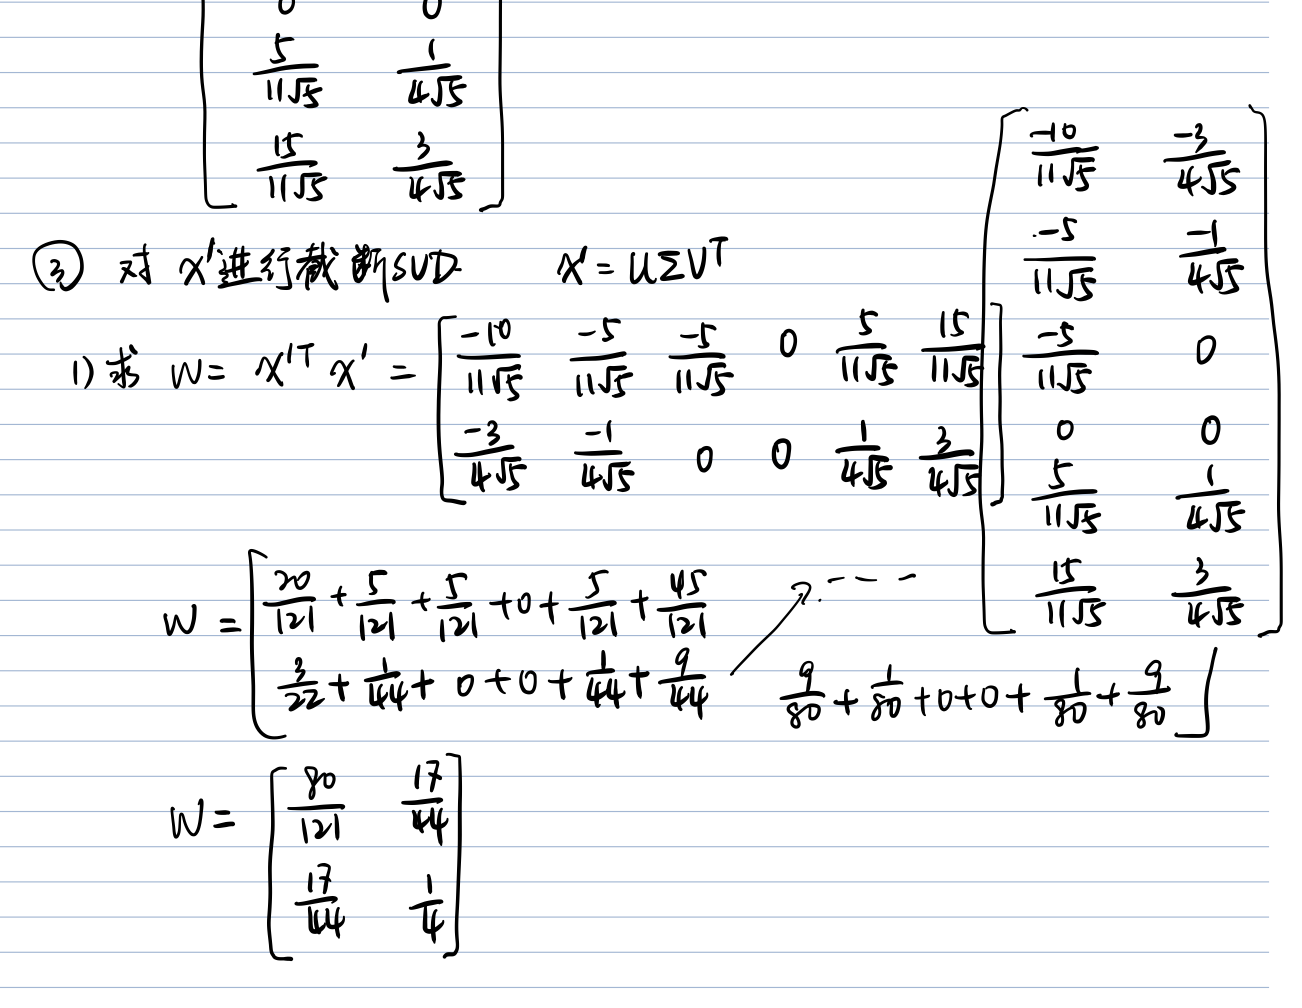 0 0
5/11√5 1/4√5
15/11√5 3/4√5
③ 对 X'进行截断SVD X' = UΣV^T
1) 求 W = X'^T X' = [ -10/11√5 -5/11√5 -5/11√5 0 5/11√5 15/11√5
-3/4√5 -1/4√5 0 0 1/4√5 3/4√5 ]
[ -10/11√5 -3/4√5
-5/11√5 -1/4√5
-5/11√5 0
0 0
5/11√5 1/4√5
15/11√5 3/4√5 ]
W = [ 20/121 + 5/121 + 5/121 + 0 + 5/121 + 45/121 ----
3/22 + 1/44 + 0 + 0 + 1/44 + 9/44 9/80 + 1/80 + 0 + 0 + 1/80 + 9/80 ]
W = [ 80/121 17/44
17/44 1/4 ]